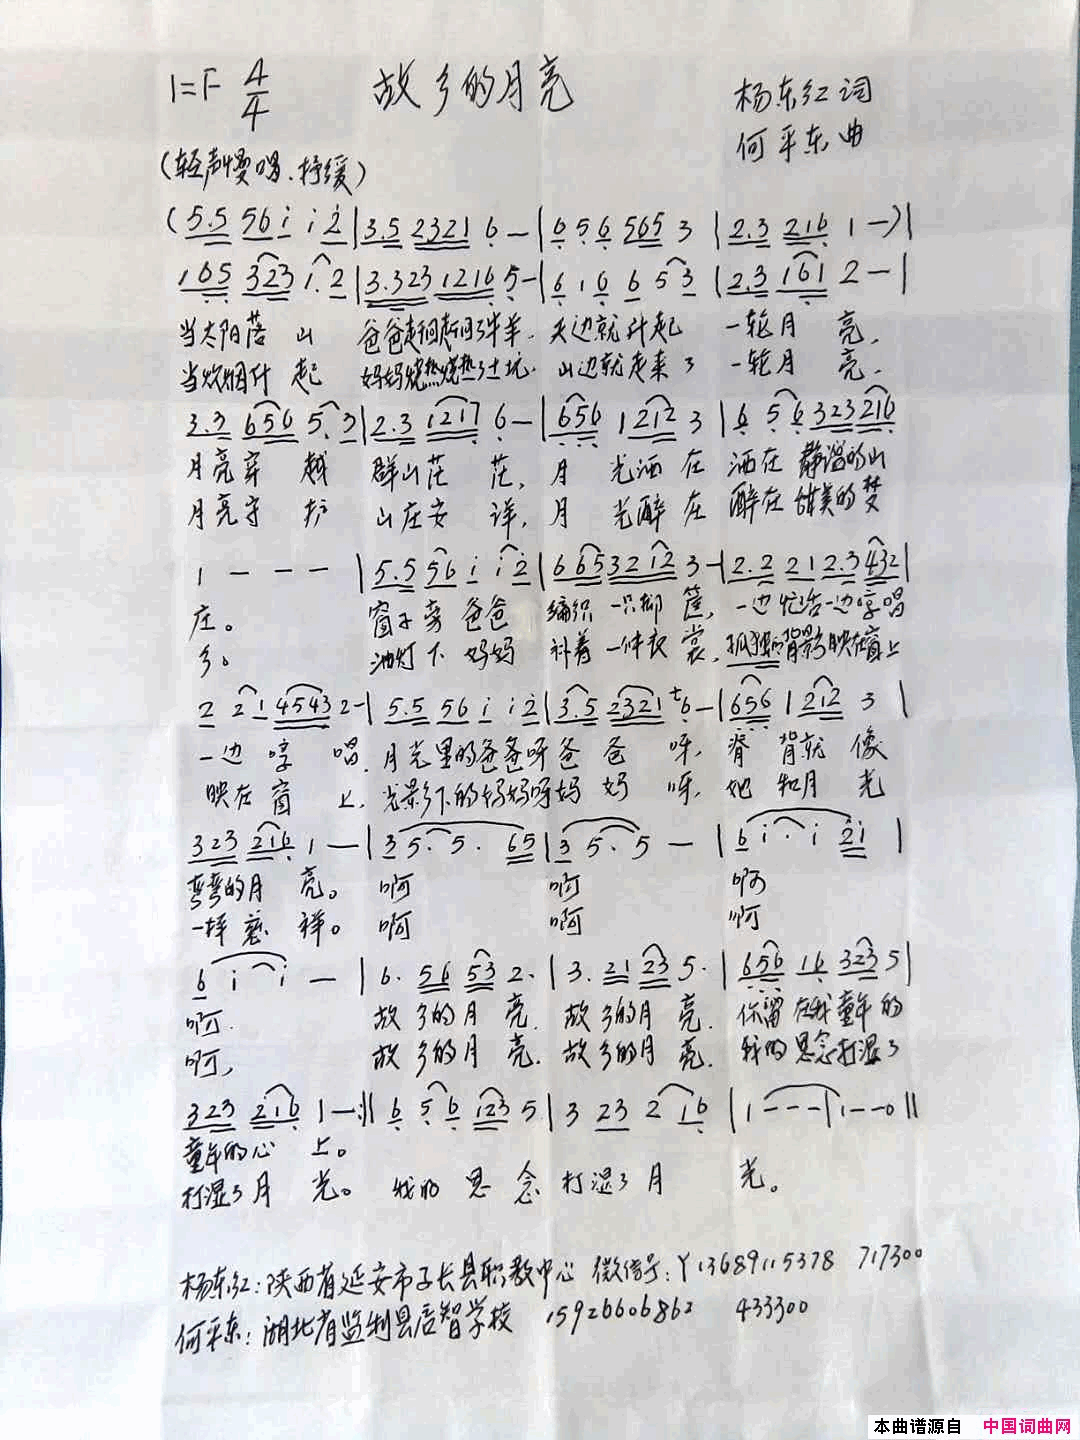 1=F 4/4 故乡的月亮 杨东红词
何平东曲
(轻声慢唱、抒缓)
(5.5 56 i i 2 | 3.5 2321 6 — | 6 5 6 565 3 | 2.3 216 1 —) |
165 323 1.2 | 3.323 1216 5 — | 6 1 6 6 5 3 | 2.3 161 2 — |
当太阳落山 爸爸赶回赶回了牛羊. 天边就升起 一轮月亮,
当炊烟升起 妈妈烧热烧热了土炕. 山边就走来了 一轮月亮.
3.3 656 5.3 | 2.3 1217 6 — | 656 1 212 3 | 6 5 6 323 216
月亮穿越 群山茫茫, 月光洒在 洒在静谧的山
月亮守护 山庄安详, 月光醉在 醉在甜美的梦
1 — — — | 5.5 56 i i 2 | 6 653212 3 — | 2.2 21 2.3 432 |
庄。 窗子旁爸爸 编织一只柳筐, 一边忙活一边哼唱
乡。 油灯下妈妈 补着一件衣裳, 孤独的背影映在窗上
2 21 4543 2 — | 5.5 56 i i 2 | 3.5 2321 6 — | 656 1 212 3 |
一边哼唱. 月光里的爸爸呀爸爸呀, 脊背就像
映在窗上. 光影下的妈妈呀妈妈呀, 她和月光
323 216 1 — | 3 5. 5. 65 | 3 5. 5 — | 6 i. i 2i |
弯弯的月亮。 啊 啊 啊
一样慈祥。 啊 啊 啊
6 i i — | 6. 56 53 2. | 3. 21 23 5. | 656 16 323 5 |
啊. 故乡的月亮. 故乡的月亮. 你留在我童年的
啊, 故乡的月亮. 故乡的月亮. 我的思念打湿了
323 216 1 — :‖ 6 5 6 123 5 | 3 23 2 16 | 1 - - - | 1 - - 0 ‖
童年的心上。
打湿了月光。 我的思念打湿了月光。
杨东红:陕西省延安市子长县职教中心 微信号:Y13689115378 717300
何平东:湖北省监利县启智学校 15926606862 433300
本曲谱源自 中国词曲网